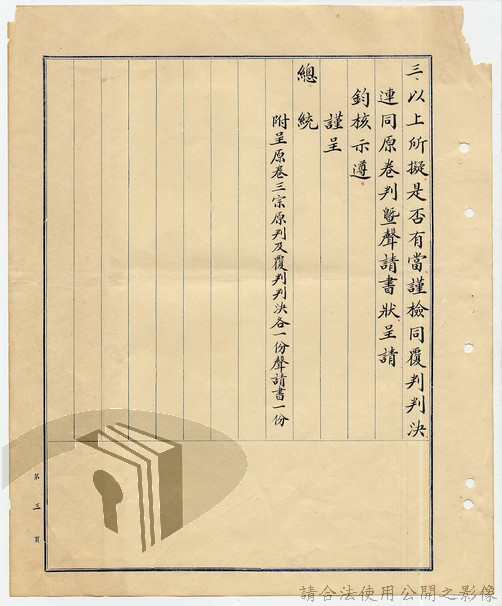 三以上所擬是否有當謹檢同覆判判決
連同原卷判暨聲請書狀呈請
鈞核示遵
謹呈
總統
附呈原卷三宗原判及覆判判決各一份聲請書一份
第三頁
請合法使用公開之影像